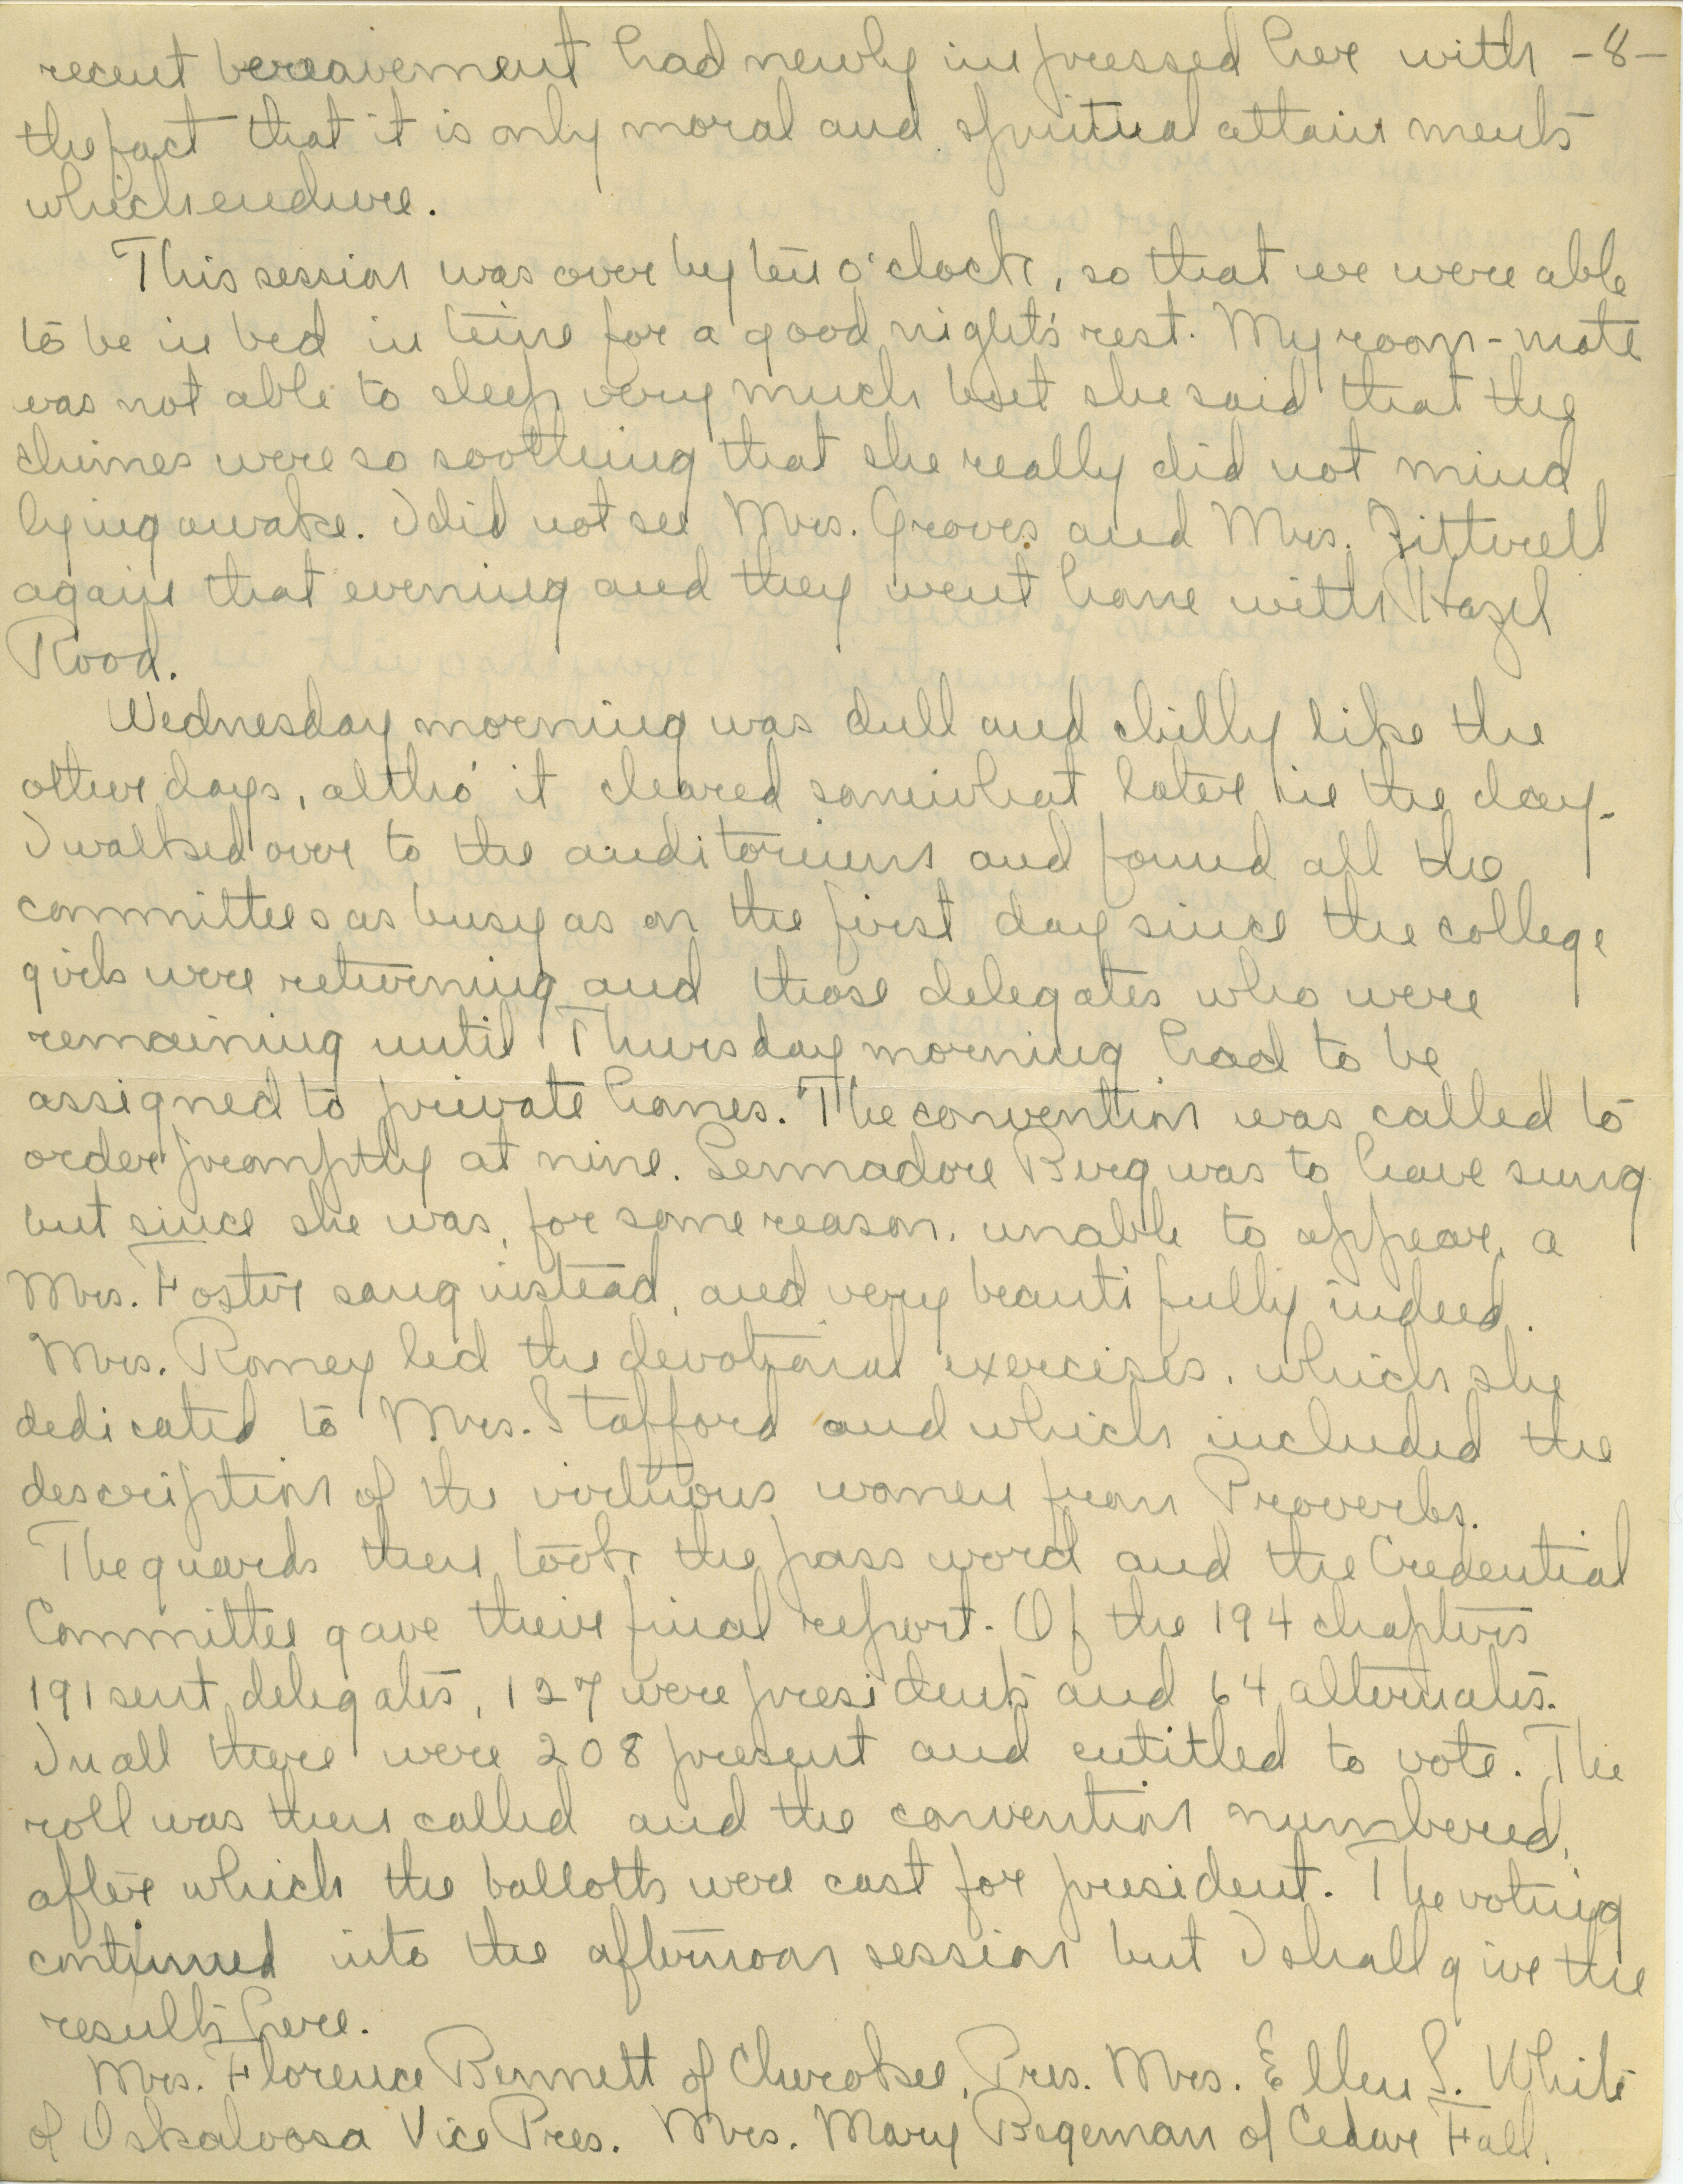 recent bereavement had newly impressed her with -8-
the fact that it is only moral and spiritual attainments
which endure.
This session was over by ten o'clock, so that we were able
to be in bed in time for a good night's rest. My room-mate
was not able to sleep very much but she said that the
chimes were so soothing that she really did not mind
lying awake. I did not see Mrs. Groves and Mrs.
again that evening and they went home with Hazel
Rood.
Wednesday morning was dull and chilly like the
other days, altho' it cleared somewhat later in the day.
I walked over to the auditorium and found all the
committees as busy as on the first day since the college
girls were returning and those delegates who were
remaining until Thursday morning had to be
assigned to private homes. The convention was called to
order promptly at nine. Lennadore Burg was to have sung
but since she was, for some reason, unable to appear, a
Mrs. Foster sang instead, and very beautifully indeed.
Mrs. Romey led the devotional exercises, which she
dedicated to Mrs. Stafford and which included the
description of the virtuous women from Proverbs.
The guards then took the pass word and the Credential
Committee gave their final report. Of the 194 chapters
191 sent delegates, 127 were presidents and 64 alternates.
In all there were 208 present and entitled to vote. The
roll was then called and the convention numbered,
after which the ballotts were cast for president. The voting
continued into the afternoon session but I shall give the
results here.
Mrs. Florence Bennett of Cherokee, Pres. Mrs. Ellen S. White
of Oskaloosa Vice Pres. Mrs. Mary Begeman of Cedar Fall.